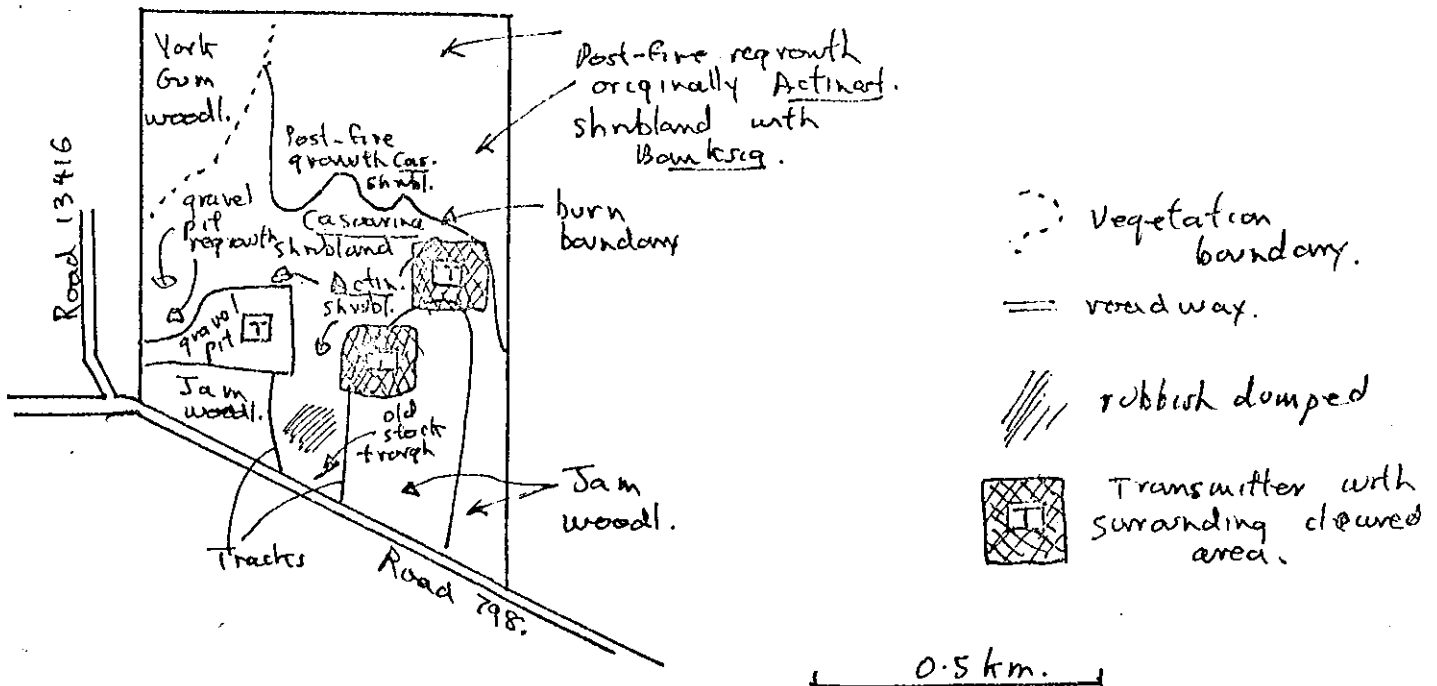 York
Gum
woodl.
Post-fire regrowth
originally Actinost.
shrubland with
Banksia.
Post-fire
growth Cas.
shrubl.
Road 13416
gravel
pit
regrowth
Casuarina
shrubland
burn
boundary
Actin.
shrubl.
T
gravel
pit
T
T
Jam
woodl.
old
stock
trough
Jam
woodl.
Tracks
Road 798.
vegetation
boundary.
roadway.
rubbish dumped
T
Transmitter with
surrounding cleared
area.
0.5 km.